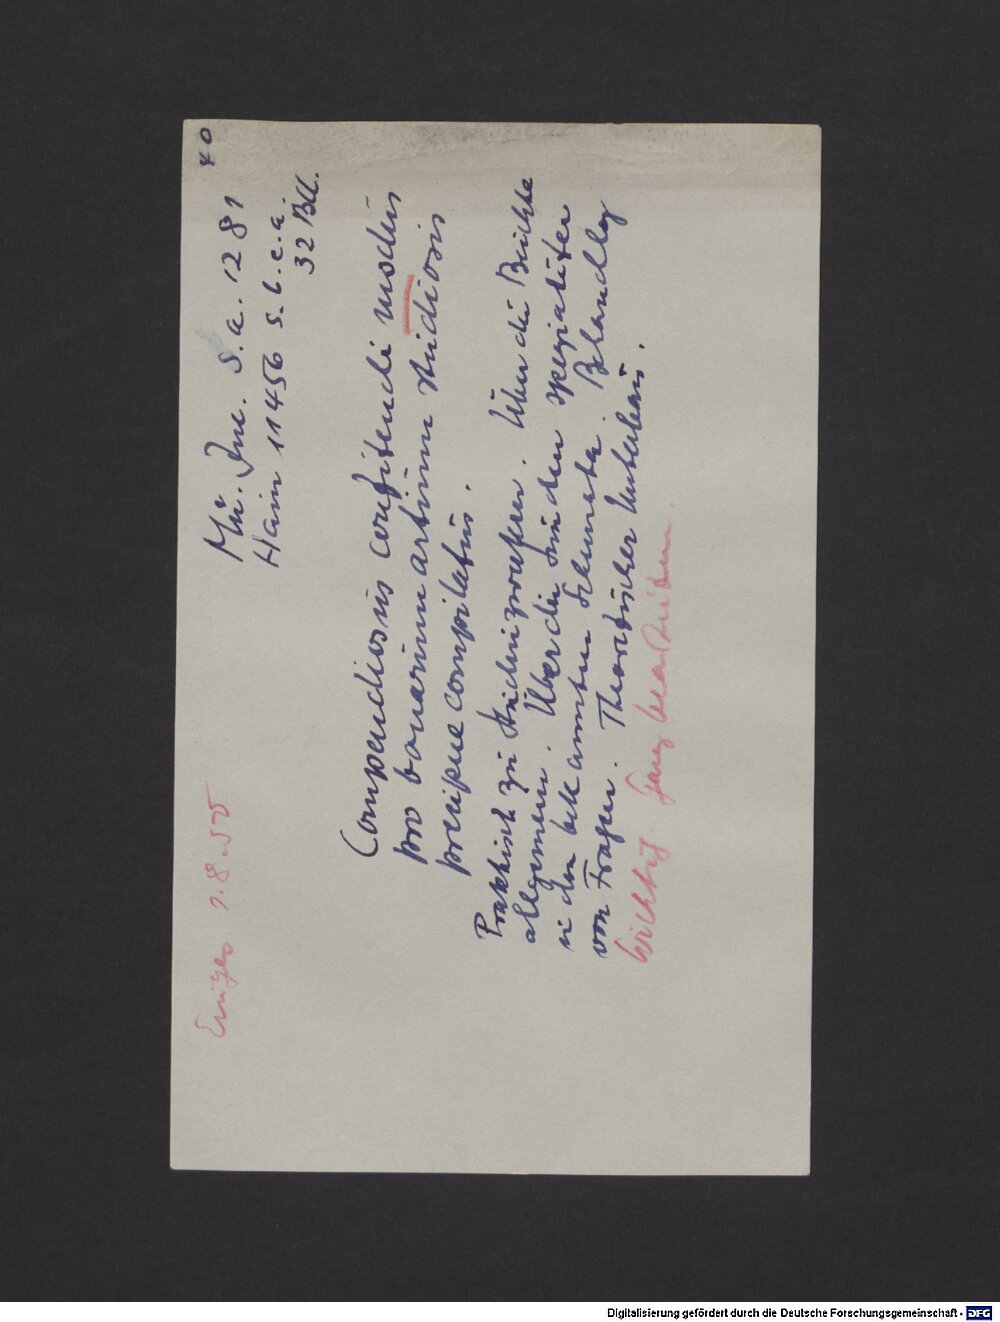 Mü. Inc. s. a. 1281 40
Hain 11456 s. l. e. a.
32 Bll.
Einiges 7.8.55
Compendiosus confitendi modus
pro bonarum artium studiosis
precipue compilatus.
Praktisch zu Studienzwecken. Über die Beichte
allgemein. Über die Sünden spezialiter
in den bekannten Schemata. Behandlg
von Fragen. Theoretischer Unterbau.
Wichtig. Ganz
Digitalisierung gefördert durch die Deutsche Forschungsgemeinschaft - DFG